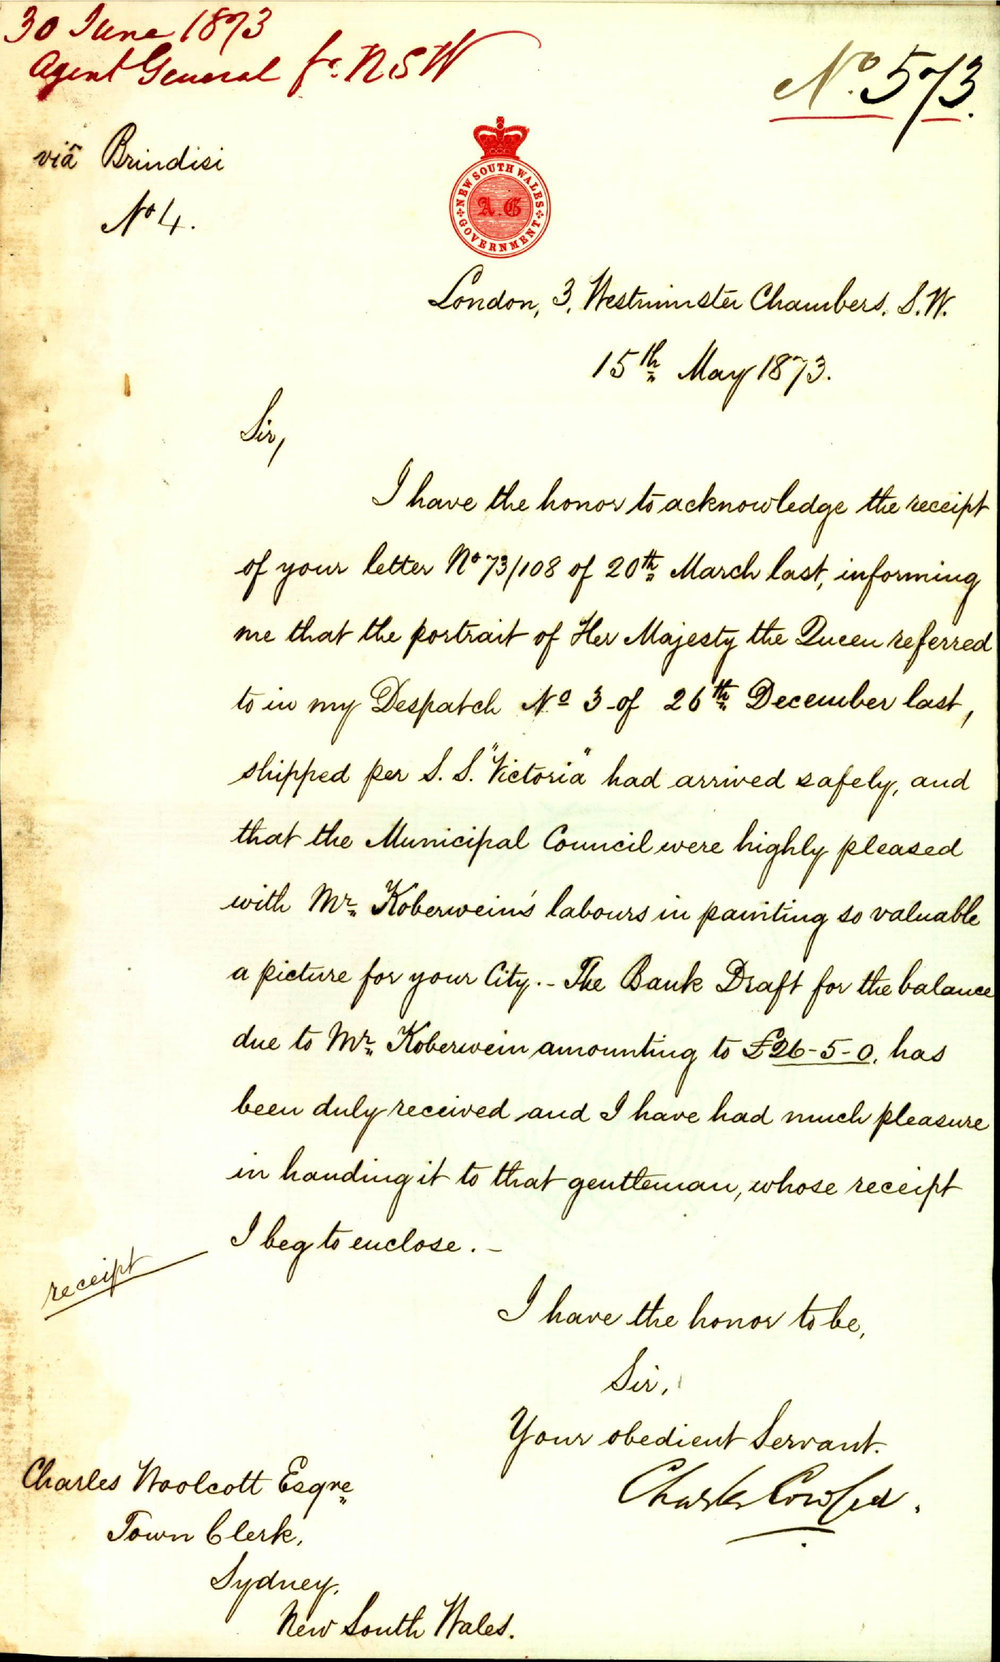 30 June 1873
Agent General fr. NSW
No. 573.
viâ Brindisi
No 4.
NEW SOUTH WALES
A.G
GOVERNMENT
London, 3, Westminster Chambers. S.W.
15th May 1873.
Sir,
I have the honor to acknowledge the receipt
of your letter No 73/108 of 20th March last, informing
me that the portrait of Her Majesty the Queen referred
to in my Despatch No 3 of 26th December last,
shipped per S. S. "Victoria" had arrived safely, and
that the Municipal Council were highly pleased
with Mr. Koberwein's labours in painting so valuable
a picture for your City. - The Bank Draft for the balance
due to Mr. Koberwein amounting to £26-5-0, has
been duly received and I have had much pleasure
in handing it to that gentleman, whose receipt
I beg to enclose. -
receipt
I have the honor to be,
Sir,
Your obedient Servant.
Charles Cowper.
Charles Woolcott Esqre
Town Clerk,
Sydney.
New South Wales.